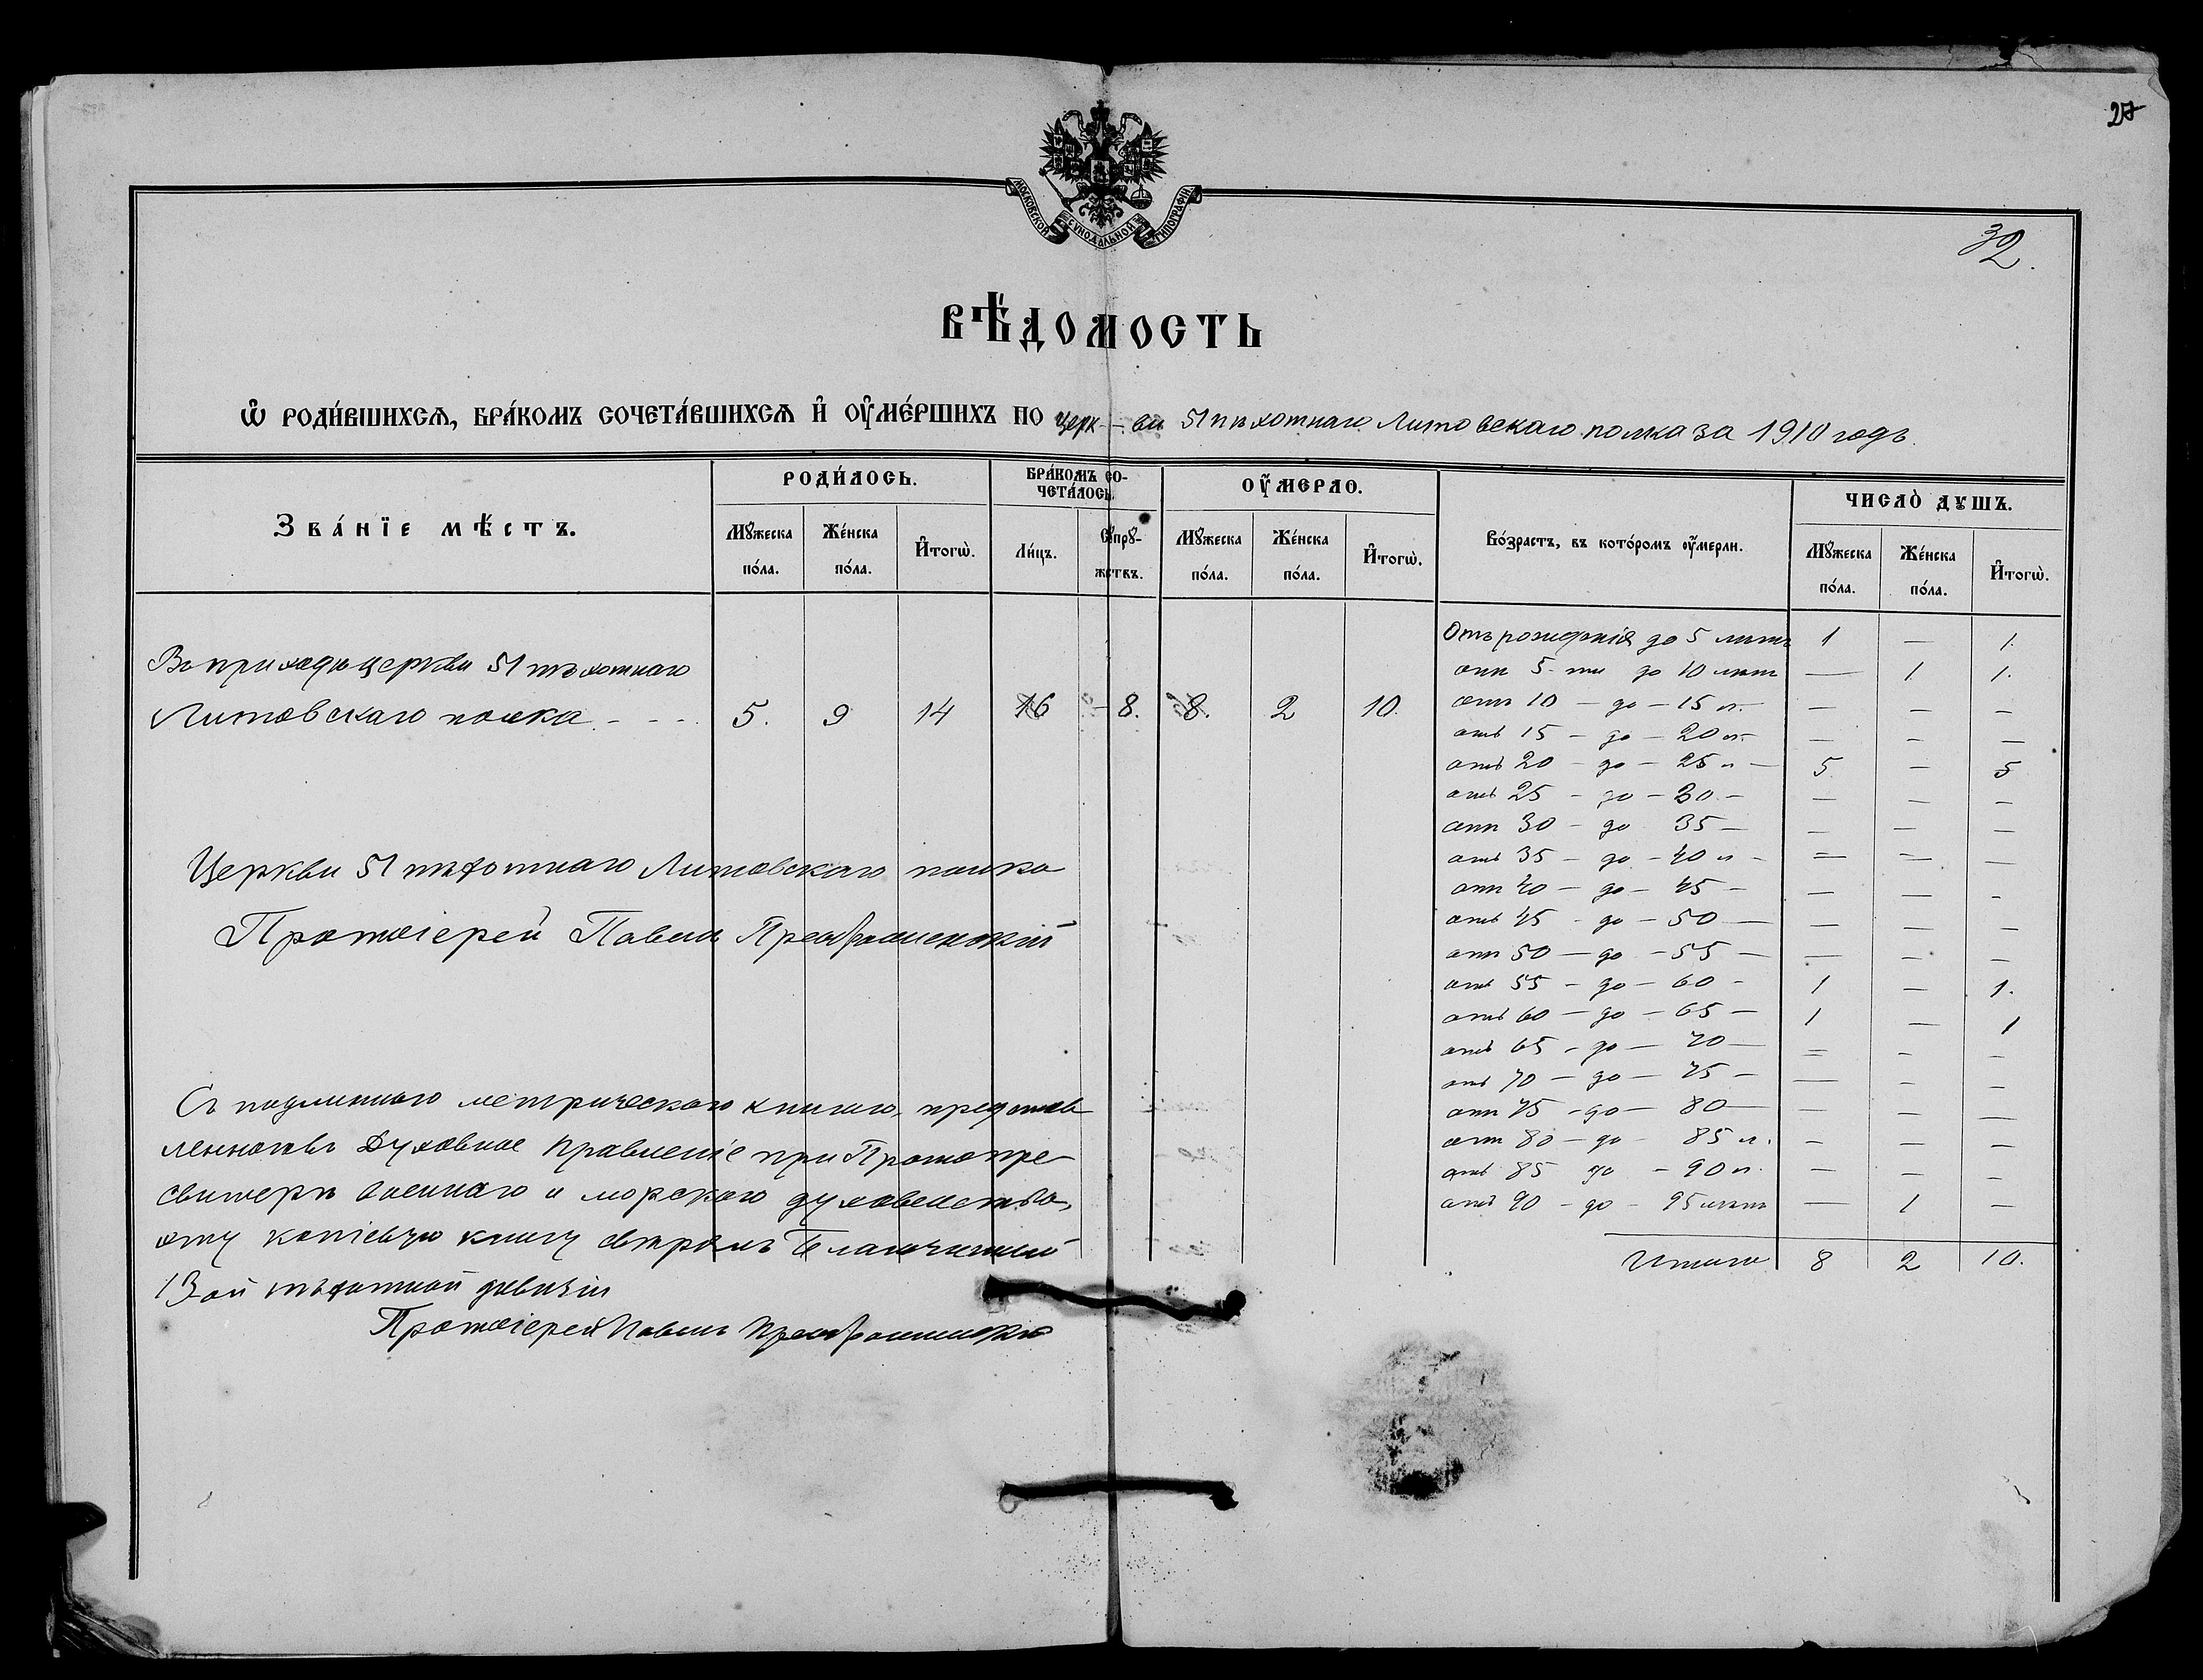 27
МОСКОВСКОЙ СѴНОДАЛЬНОЙ ТИПОГРАФІИ
32.
ВѢДОМОСТЬ
Ѡ҆ РОДИ́ВШИХСѦ, БРА́КОМЪ СОЧЕТА́ВШИХСѦ И҆ ОУ҆МЕ́РШИХЪ ПО церк-ви 51 пѣхотнаго Литовскаго полка за 1910 годъ.
Зва́нїе мѣ́стъ.
РОДИ́ЛОСЬ.
БРА́КОМЪ СО-
ЧЕТА́ЛОСЬ.
ОУ҆́МЕРЛО.
Во́зрастъ, въ кото́ромъ оу҆́мерли.
ЧИСЛО̀ ДꙊШЪ.
Мꙋ́жеска по́ла.
Же́нска по́ла.
И҆тогѡ̀.
Ли́цъ.
Сꙋпрꙋ́-
жествъ.
Мꙋ́жеска по́ла.
Же́нска по́ла.
И҆тогѡ̀.
Мꙋ́жеска по́ла.
Же́нска по́ла.
И҆тогѡ̀.
Въ приходѣ церкви 51 пѣхотнаго
Литовскаго полка - - - 5. 9 14 16 - 8. 8. 2 10.
Отъ рожденія до 5 лѣтъ 1 — 1.
отъ 5-ти до 10 лѣтъ — 1 1.
отъ 10 — до — 15 л. — — —
отъ 15 — до — 20 л. — — —
отъ 20 — до — 25 л — 5. — 5
отъ 25 — до — 30 — — — —
отъ 30 — до 35 — — — —
отъ 35 — до — 40 л — — — —
отъ 40 — до — 45 — — — —
отъ 45 — до — 50 — — — —
отъ 50 — до — 55 — — — —
отъ 55 — до — 60 — 1 — 1.
отъ 60 — до — 65 — 1 — 1
отъ 65 — до — 70 — — — —
отъ 70 — до — 75 — — — —
отъ 75 — до — 80 — — — —
отъ 80 — до — 85 л. — — —
отъ 85 до — 90 л. — — —
отъ 90 — до — 95 лѣтъ — 1 —
Итого 8 2 10.
Церкви 51 пѣхотнаго Литовскаго полка
Протоіерей Павелъ Преображенскій
Съ подлинною метрическою книгою, представ
ленною въ Духовное Правленіе при Протопре
свитерѣ военнаго и морского духовенства,
эту копіевую книгу свѣрялъ Благочинный
13ой пѣхотной дивизіи
Протоіерей Павелъ Преображенскій